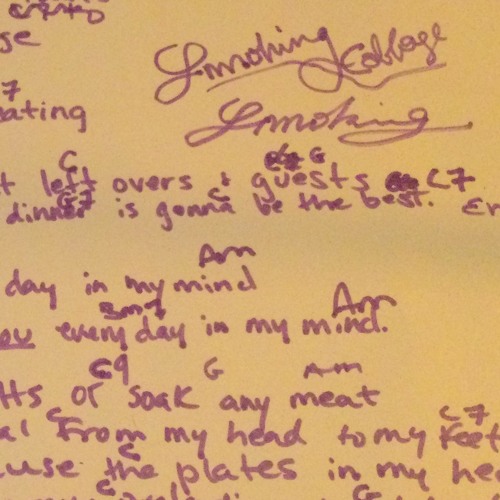 se
Smoking Cabbage
7
eating
Smoking
C G
t left overs & guests C7
G7 C
dinner is gonna be the best.
Am
day in my mind
Bm7 Am
ou everyday in my mind.
C9 G Am
tts or soak any meat
C C7
al From my head to my feet
C
use the plates in my he
C G